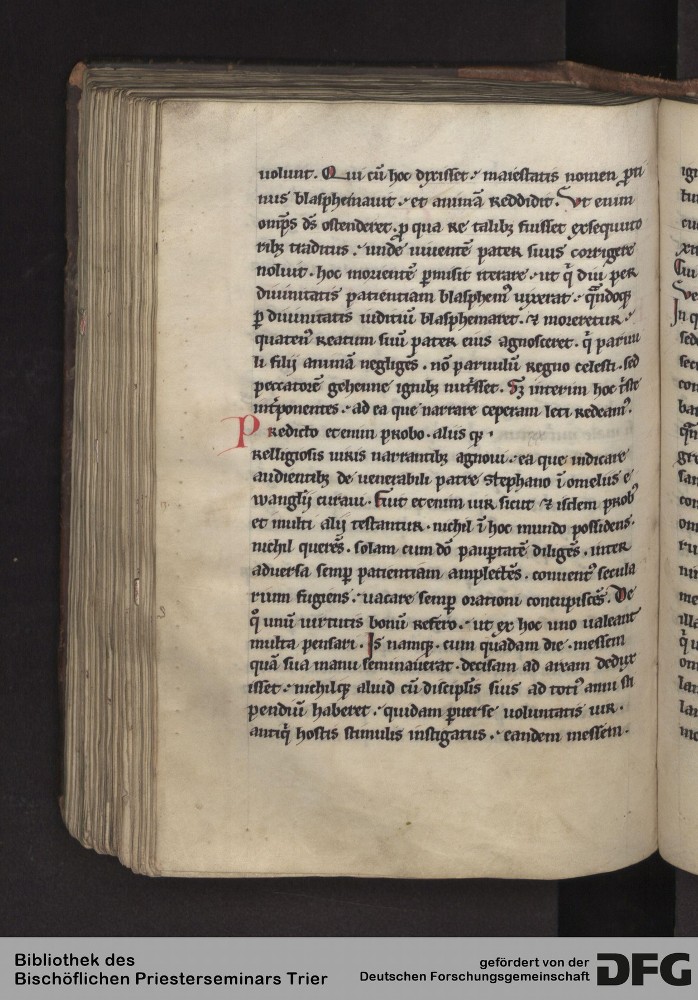 uolunt. Qui cū hoc dixisset. maiestatis nomen ꝓti
nus blasphemauit. et animā reddidit. Vt enim
omp̄s ds̄ ostenderet. ꝓ qua re talibꝫ fuisset exsequuto
ribꝫ traditus. unde uiuentē pater suus corrigere
noluit. hoc morientē ꝑmisit iterare. ut q̄ diu per
diuinitatis patientiam blasphemꝰ uixerat. qn̄doqꝫ
ꝑ diuinitatis iuditiū blasphemaret. ⁊ moreretur.
quatenꝰ reatum suū pater eius agnosceret. q̇ paruu
li filij animā negligēs. nō paruulū regno celesti. sed
peccatorē gehenne ignibꝫ nutrisset. Sꝫ interim hoc
int̄ponentes. ad ea que narrare ceperam leti redeamꝰ.
Predicto etenim probo. aliis qꝫ.
relligiosis uiris narrantibꝫ agnoui. ea que indicare
audientibꝫ de uenerabili patre stephano ī omelus e
wanglij curaui. fuit etenim uir sicut ⁊ isdem probꝰ
et multi alij testantur. nichil ī hoc mundo possidens.
nichil querēs. solam cum dō paupertatē diligēs. inter
aduersa semꝑ patientiam amplectēs. conuentꝰ secula
rium fugiens. uacare semꝑ orationi concupiscēs. De
q̊ unū uirtutis bonū refero. ut ex hoc uno ualeant
multa pensari. Is namqꝫ. cum quadam die. messem
quā sua manu seminauerat. decisam ad aream dedux
isset. nichilqꝫ aliud cū discipl̄is suis ad totiꝰ anni sti
pendiū haberet. quidam ꝑuerse uoluntatis uir.
antiq̇ hostis stimulis instigatus. eandem messem.
Bibliothek des
Bischöflichen Priesterseminars Trier
gefördert von der
Deutschen Forschungsgemeinschaft
DFG